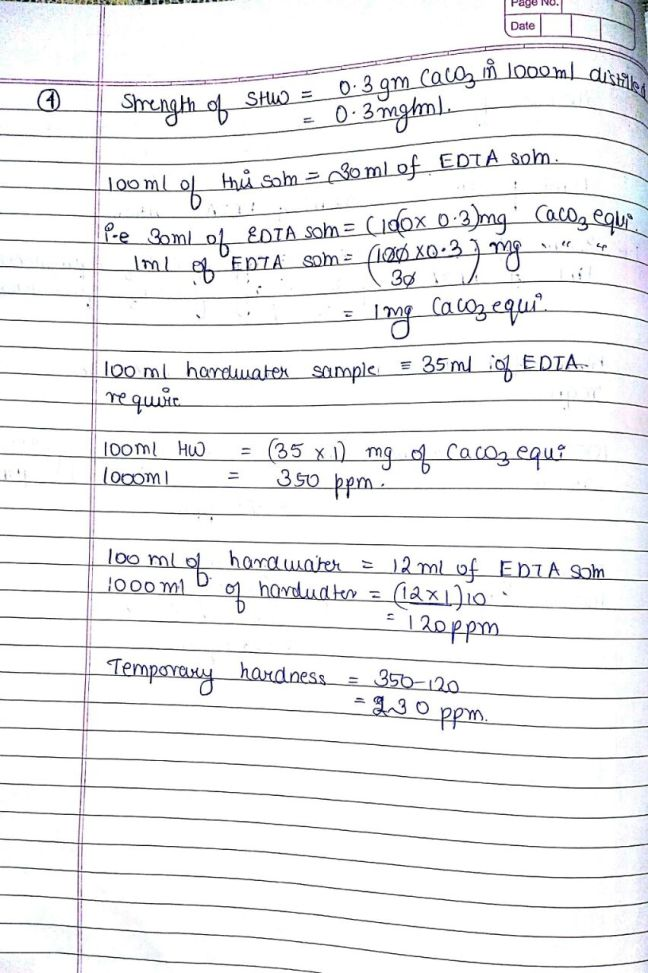 Page No.
Date
④ Strength of SHW = 0.3 gm CaCO3 in 1000ml distilled
= 0.3mg/ml.
100ml of this soln = 30ml of EDTA soln.
i.e 30ml of EDTA soln = (100 x 0.3)mg CaCO3 equi.
1ml of EDTA soln = (100 x 0.3 / 30) mg " " "
= 1mg CaCO3 equi.
100 ml hardwater sample = 35ml of EDTA.
require
100ml HW = (35 x 1) mg of CaCO3 equi
1000ml = 350 ppm.
100 ml of hardwater = 12ml of EDTA soln
1000ml of hardwater = (12x1)10
= 120ppm
Temporary hardness = 350-120
= 230 ppm.